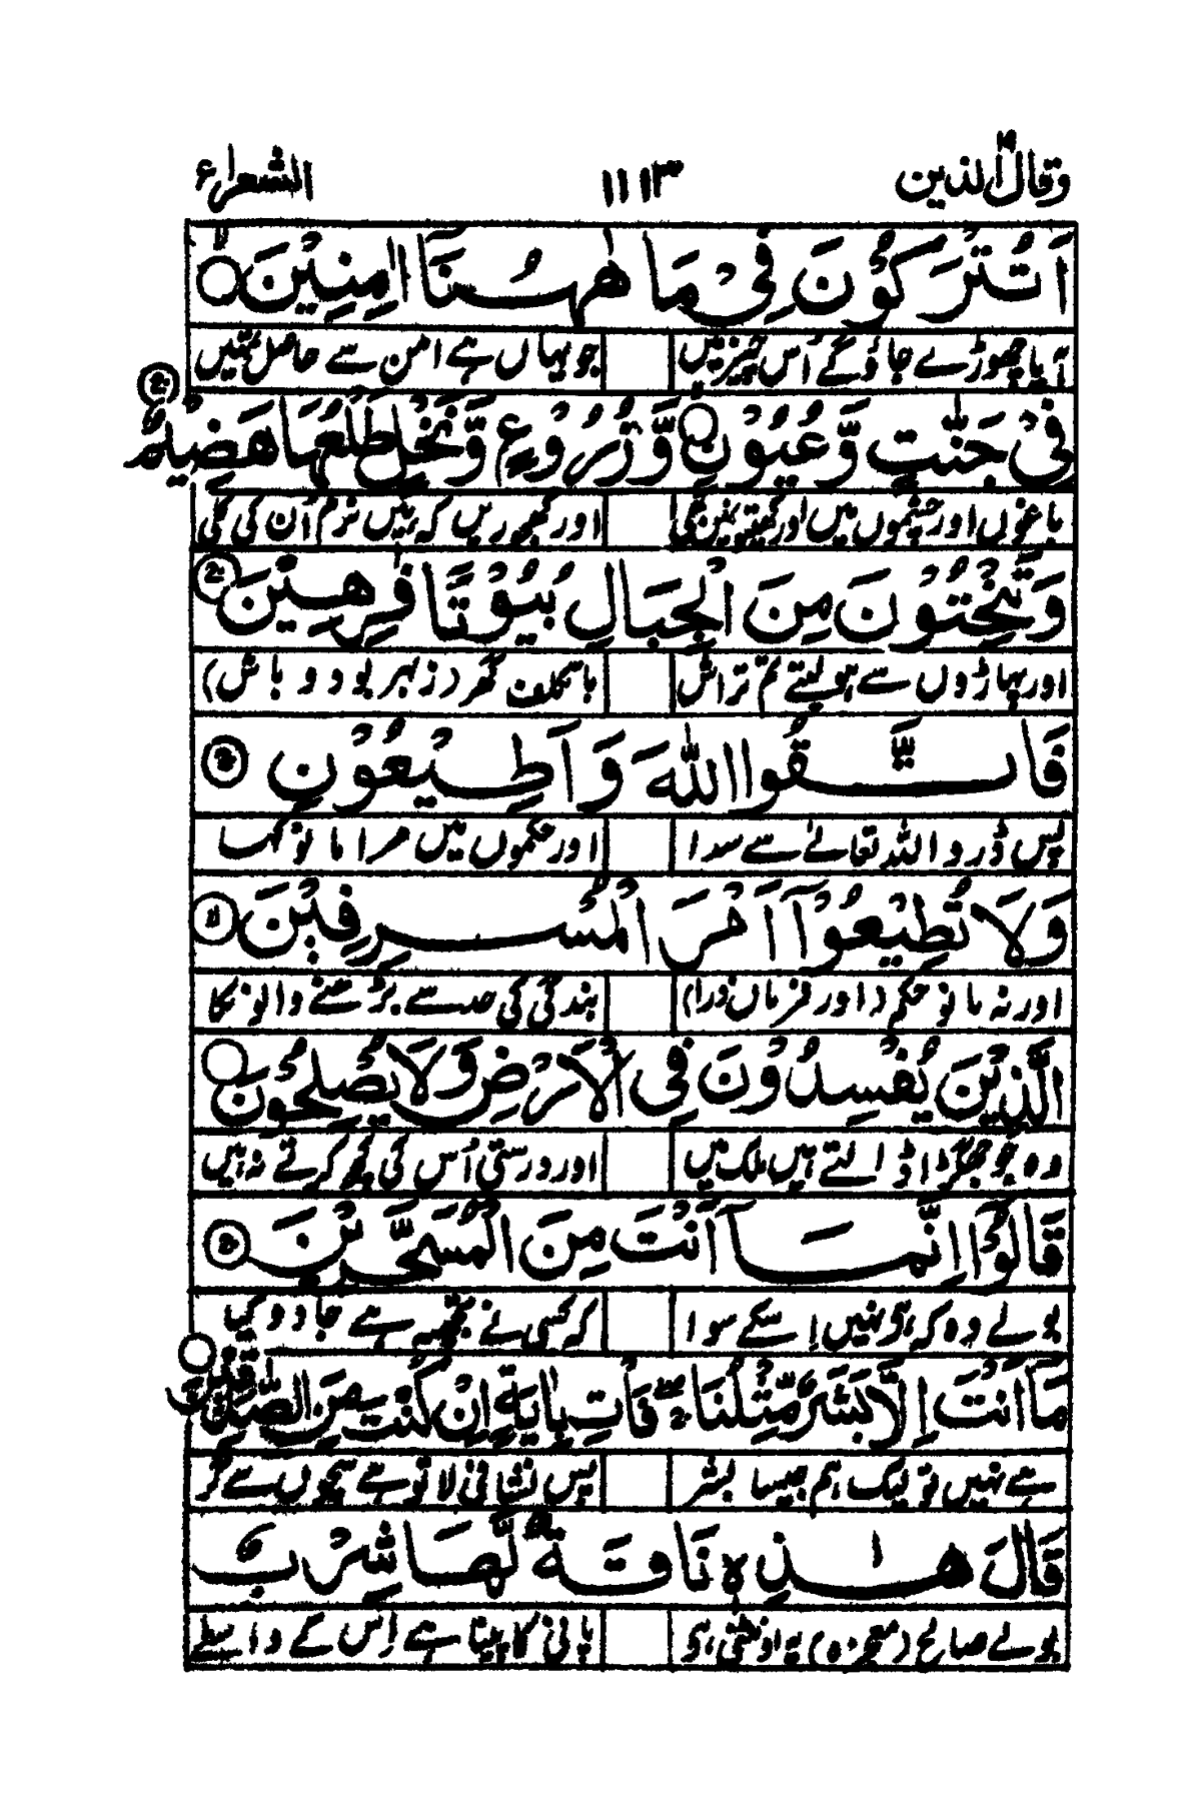 وقال الذین ۱۹ ۱۱۱۳ الشعراء
اَتُتْرَكُوْنَ فِيْ مَا هٰهُنَآ اٰمِنِيْنَ
آیا چھوڑے جاؤ گے اُس چیز میں جو یہاں ہے امن سے حاصل تمہیں
فِيْ جَنّٰتٍ وَّعُيُوْنٍ وَّزُرُوْعٍ وَّنَخْلٍ طَلْعُهَا هَضِيْمٌ
باغوں اور چشموں میں اور کھیتیوں میں اور کھجوریں کہ ہیں نرم اُن کی کلی
وَتَنْحِتُوْنَ مِنَ الْجِبَالِ بُيُوْتًا فٰرِهِيْنَ
اور پہاڑوں سے ہو لیتے تم تراش باتکلف گھر (زہر بود و باش)
فَاتَّقُوا اللّٰهَ وَاَطِيْعُوْنِ
پس ڈرو اللہ تعالےٰ سے سدا اور حکموں میں مرا مانو کہا
وَلَا تُطِيْعُوْٓا اَمْرَ الْمُسْرِفِيْنَ
اور نہ مانو حکم (اور فرماں ذرا) بندگی کی حد سے بڑھنے والونکا
الَّذِيْنَ يُفْسِدُوْنَ فِي الْاَرْضِ وَلَا يُصْلِحُوْنَ
وہ جو جھگڑا ڈالتے ہیں ملک میں اور درستی اُس کی کچھ کرتے نہ ہیں
قَالُوْٓا اِنَّمَآ اَنْتَ مِنَ الْمُسَحَّرِيْنَ
بولے وہ کہ ہو نہیں اِسکے سوا کہ کسی نے تجھ پہ ہے جادو کیا
مَآ اَنْتَ اِلَّا بَشَرٌ مِّثْلُنَا فَاْتِ بِاٰيَةٍ اِنْ كُنْتَ مِنَ الصّٰدِقِيْنَ
ہے نہیں تو لیک ہم جیسا بشر پس نشانی لا تو ہے سچوں سے گر
قَالَ هٰذِهٖ نَاقَةٌ لَّهَا شِرْبٌ
بولے صالح (معجزہ) یہ اونٹنی ہو پانی کا پینا ہے اِس کے واسطے